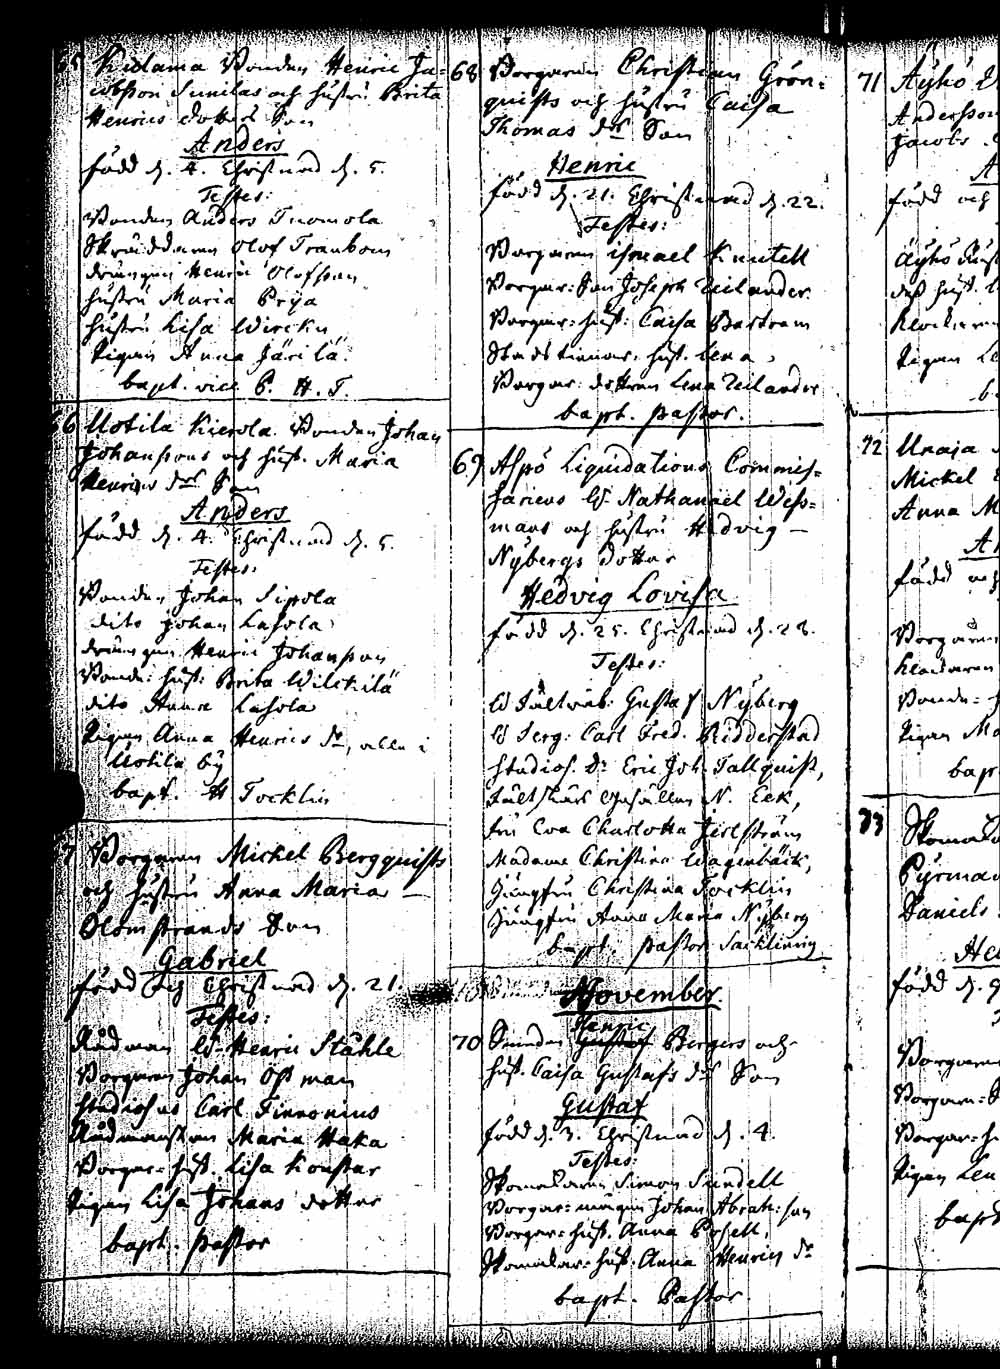 65 Kidama Bonden Henric Ja=
cobsson Sunilas och hustru Brita
Henrics dotters Son
Anders
född d. 4. Christnad d. 5.
Testes:
Bonden Anders Tuomola
Skräddaren Olof Traubom
drängen Henric Olofsson
hustru Maria Prija
hustru Lisa Wircku
Pigan Anna Järilä
bapt. vice P. H. T.
66 Uotila Kierola Bonden Johan
Johanssons och hust. Maria
Henrics dr Son
Anders
född d. 4. Christnad d. 5.
Testes:
Bonden Johan Sipola
dito Johan Lasola
drängen Henric Johansson
Bonde: hust: Brita Wilckilä
dito Anna Lasola
Pigan Anna Henrics dr, alla i
Uotila by
bapt. H Tocklin
7 Borgaren Mickel Bergquists
och hustru Anna Maria
Blomstrands Son
Gabriel
född och Christnad d. 21.
Testes:
Rådman W. Henric Ståhle
Borgaren Johan Östman
Studiosus Carl Finnonius
Rådmanskan Maria Haka
Borgar=hust. Lisa Konstar
Pigan Lisa Johans dotter
bapt. pastor
68 Borgaren Christian Grön=
quists och hustru Caisa
Thomas dr Son
Henric
född d. 21. Christnad d. 22.
Testes:
Borgaren Ismael Knutell
Borgar: Son Joseph Zeilander
Borgar=hust: Caisa Bartram
hust. Lena
Borgar: dottren Lena Zeilander
bapt. pastor.
69 Aspö Liquidations Commis=
sariens W. Nathanael Wess=
mans och hustru Hedvig
Nybergs dotter
Hedvig Lovisa
född d. 25. Christnad d. 28.
Testes:
W Fältwäb: Gustaf Nyberg
W Serg: Carl Fred. Ridderstad
Studios. Dr Eric Joh. Tallquist,
Fältskärs Gesällen N. Eek,
fru Eva Charlotta Jerlström
Madame Christina Wagenbäck,
Jungfru Christina Tocklin
Jungfru Anna Maria Nyberg
bapt. pastor Sacklinius
November
Henric
70 Smeden Gustaf Bergers och
hust. Caisa Gustafs dr Son
Gustaf
född d. 3. Christnad d. 4.
Testes
Skomakaren Simon Sundell
Borgar= Johan Abrah: son
Borgar=hust. Anna
Skomakar=hust. Anna Henrics dr
bapt. Pastor.
71 Äyhö
Andersson
Jacobs
född och
Äyhö
dess hust.
Pigan Le
72 Unaja
Mickel
Anna M
An
född och
Borgaren
Bonde=
Pigan Ma
bapt
73 Skomak
Pyrman
Daniels
Hen
född d. 9
Borgaren
Borgare=
Borgar=h
Pigan Len
bapt